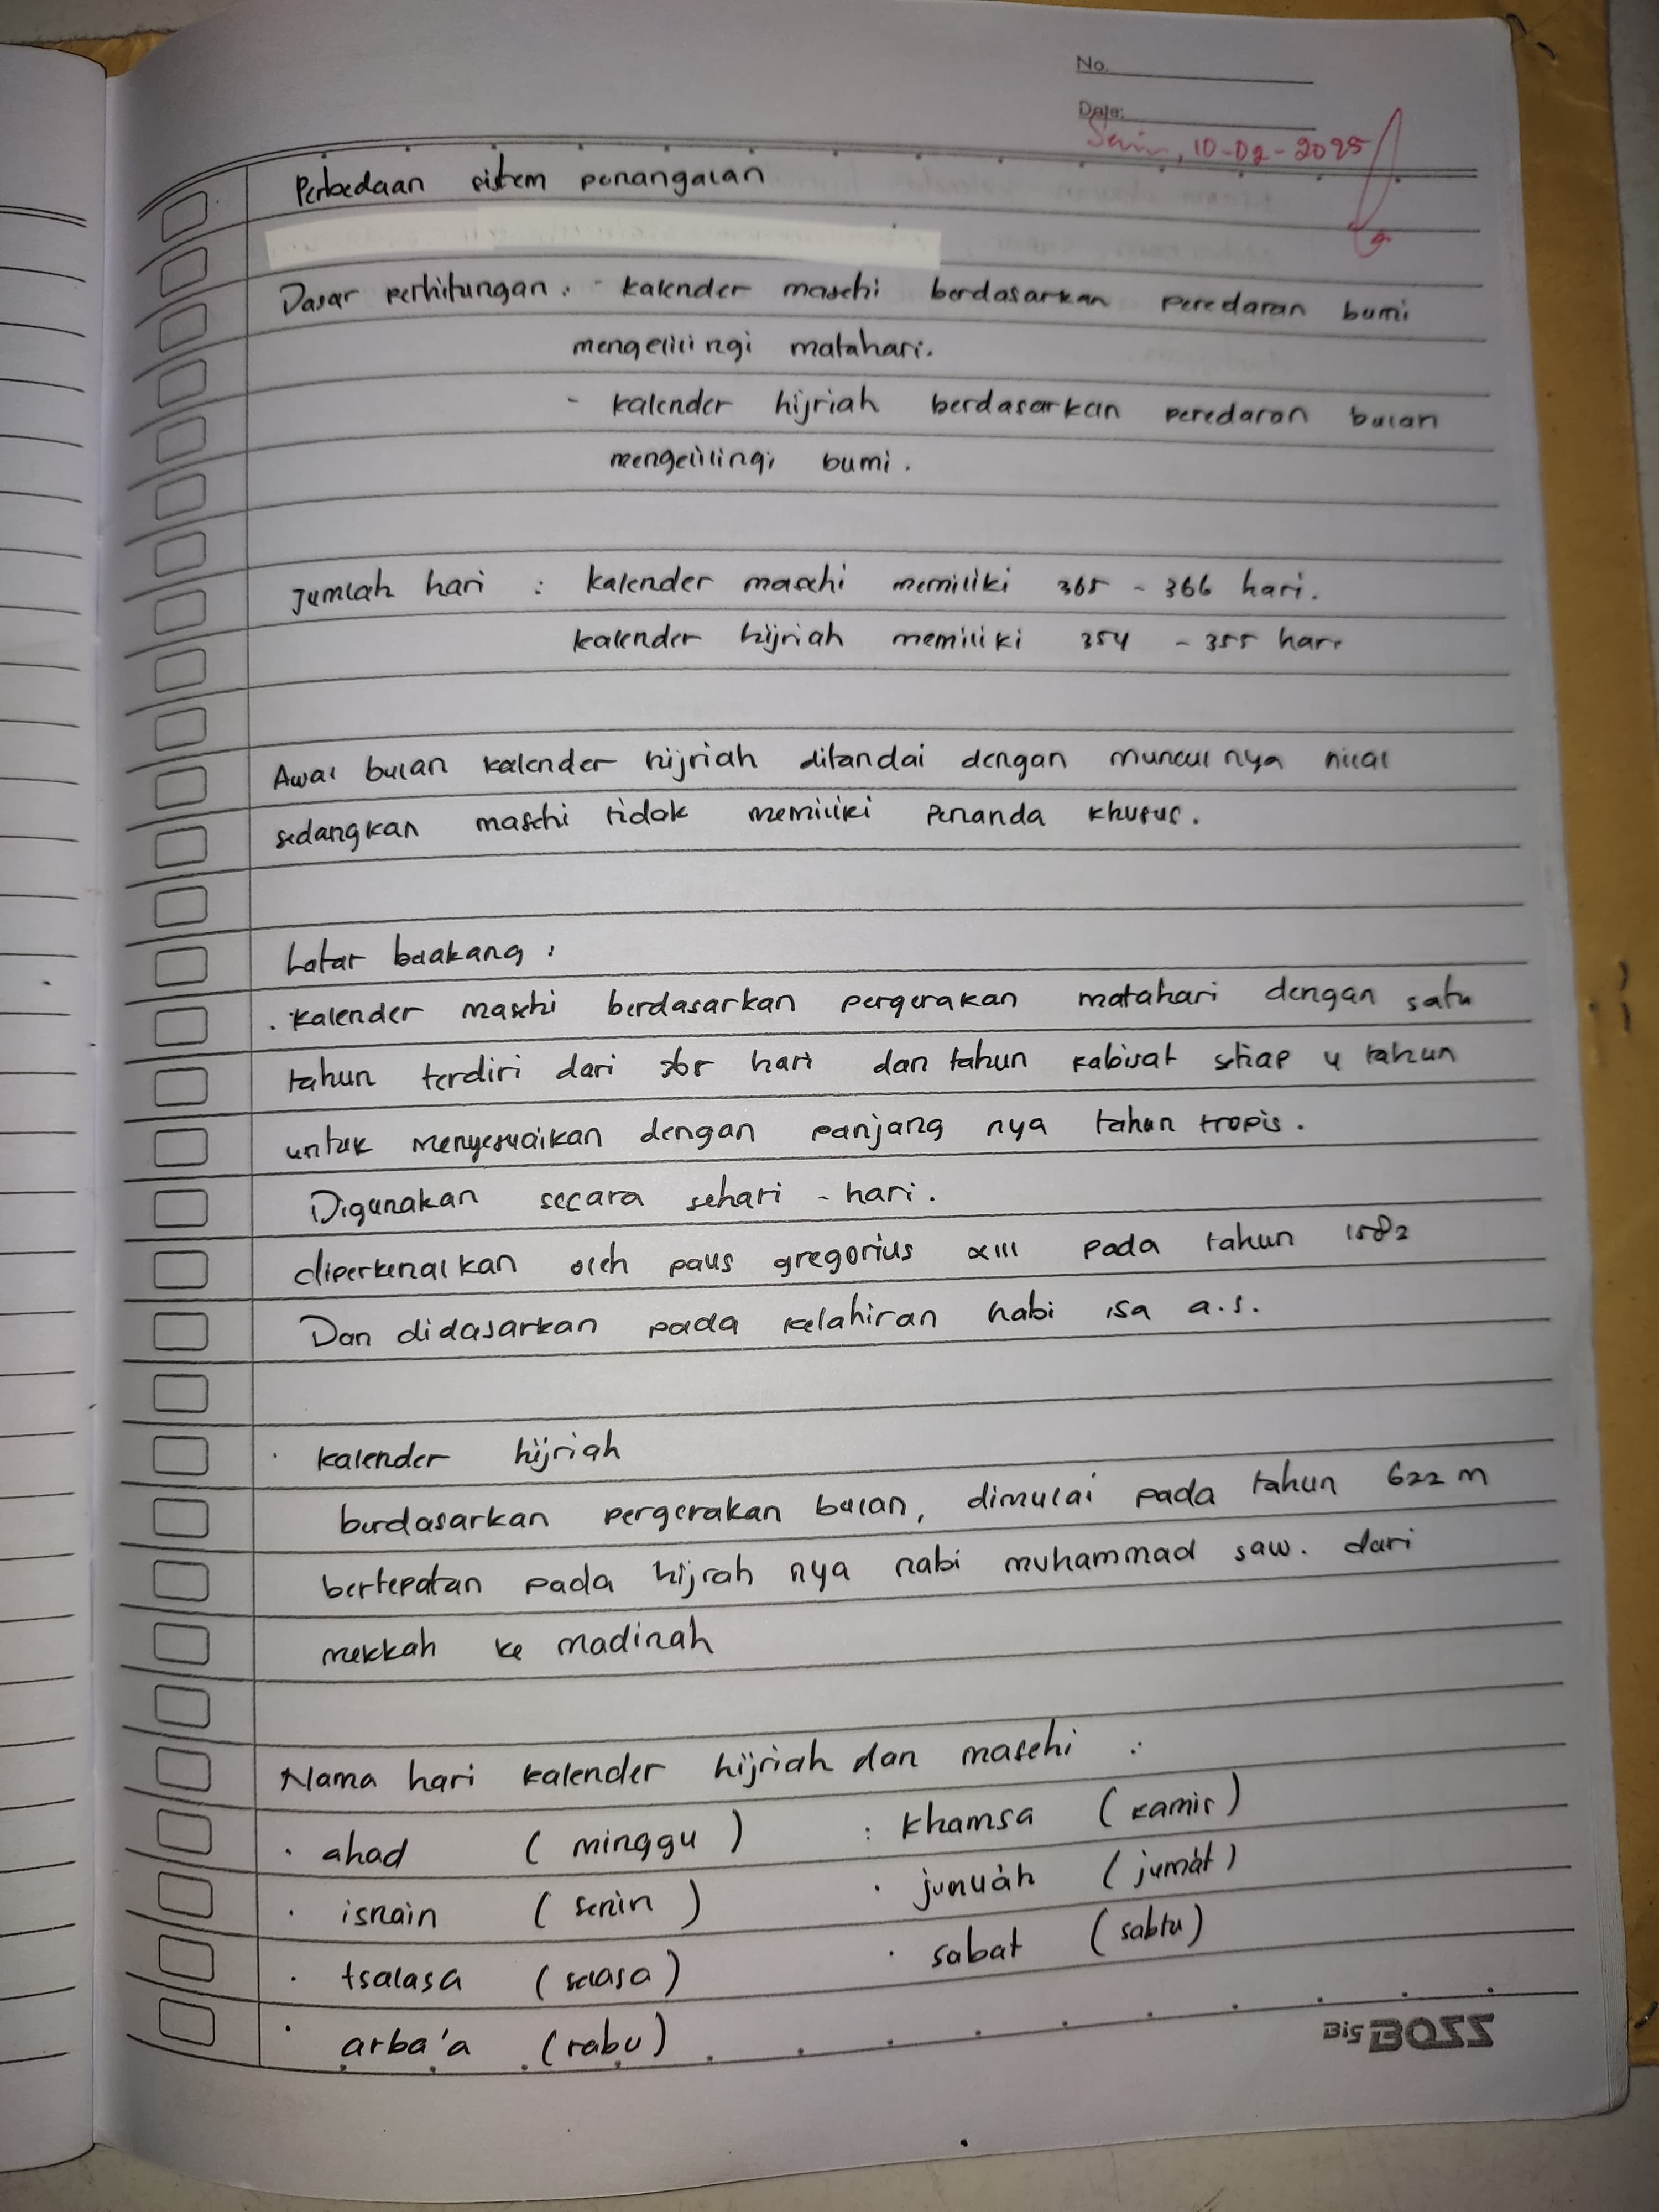 No.
Date:
Senin, 10-02-2025
Perbedaan sistem penangalan
Dasar perhitungan : - kalender masehi berdasarkan peredaran bumi
mengelilingi matahari.
- kalender hijriah berdasarkan peredaran bulan
mengelilingi bumi .
Jumlah hari : kalender masehi memiliki 365 - 366 hari.
kalender hijriah memiliki 354 - 355 hari
Awal bulan kalender hijriah ditandai dengan muncul nya hilal
sedangkan masehi tidak memiliki penanda khusus.
Latar belakang :
. kalender masehi berdasarkan pergerakan matahari dengan satu
tahun terdiri dari 365 hari dan tahun kabisat setiap 4 tahun
untuk menyesuaikan dengan panjang nya tahun tropis.
Digunakan secara sehari - hari.
diperkenalkan oleh paus gregorius XIII pada tahun 1582
Dan didasarkan pada kelahiran nabi isa a.s.
. kalender hijriah
berdasarkan pergerakan bulan, dimulai pada tahun 622 m
bertepatan pada hijrah nya nabi muhammad saw. dari
mekkah ke madinah
Nama hari kalender hijriah dan masehi :
. ahad ( minggu ) : khamsa ( kamis )
. isnain ( senin ) . jumu'ah ( jum'at )
. tsalasa ( selasa ) . sabat ( sabtu )
. arba'a ( rabu )
Big BOSS